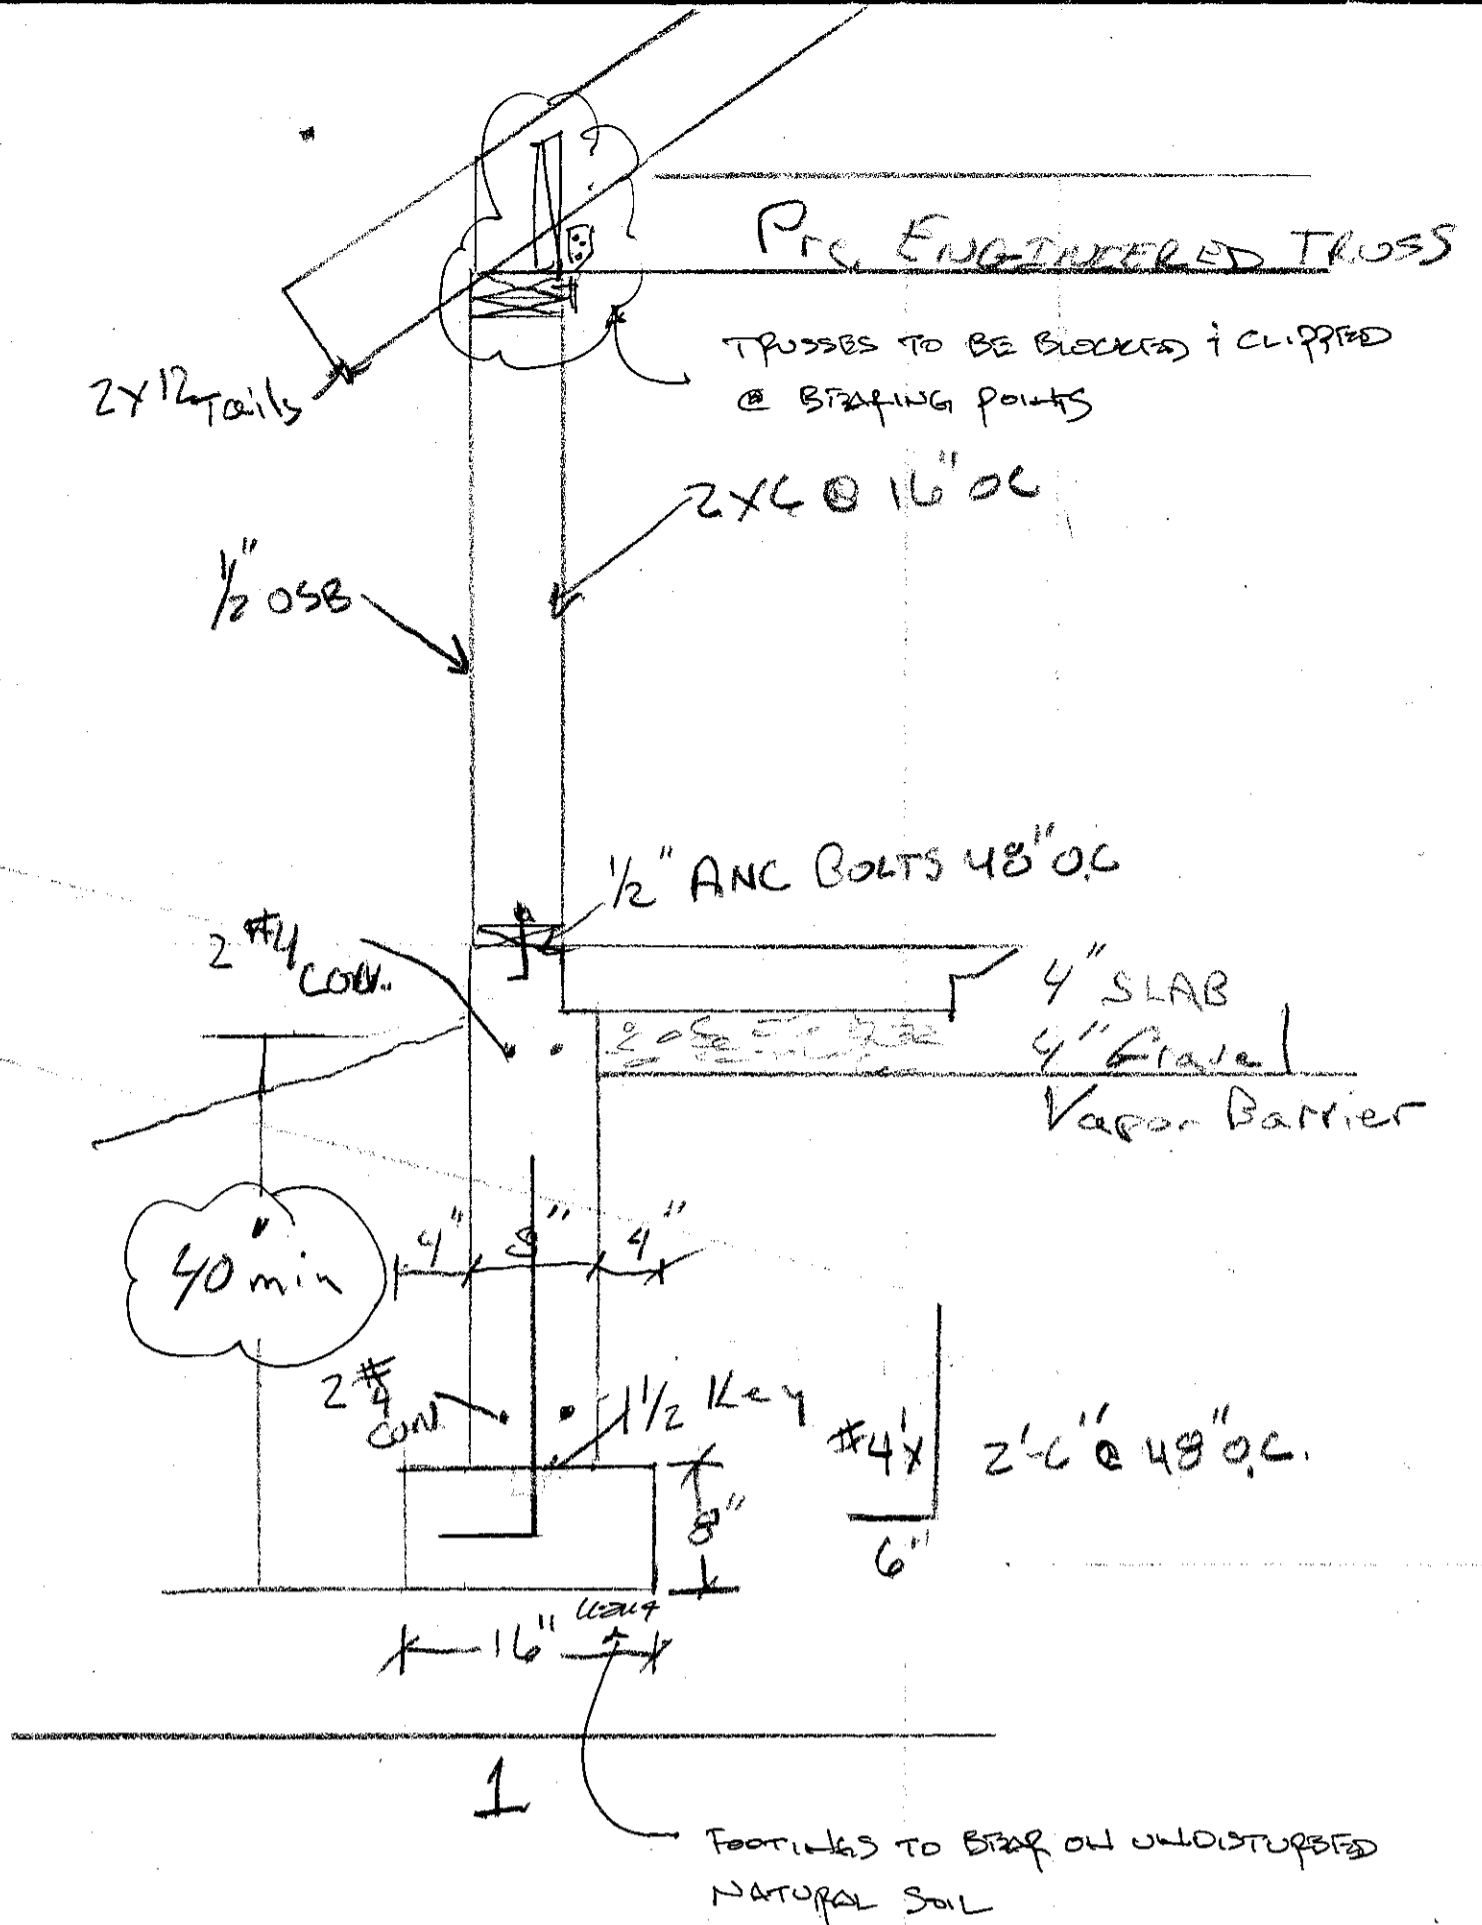 Pre. ENGINEERED TRUSS
TRUSSES TO BE BLOCKED & CLIPPED
@ BEARING POINTS
2X12 Tails
2X6 @ 16" OC
1/2" OSB
1/2" ANC BOLTS 48" O.C
2 #4
CON.
4" SLAB
4" Gravel
Vapor Barrier
40" min
4" 8" 4"
2 #4
CON
1 1/2 Key
#4 X 2'-6" @ 48" O.C.
8"
6"
16"
1
FOOTINGS TO BEAR ON UNDISTURBED
NATURAL SOIL